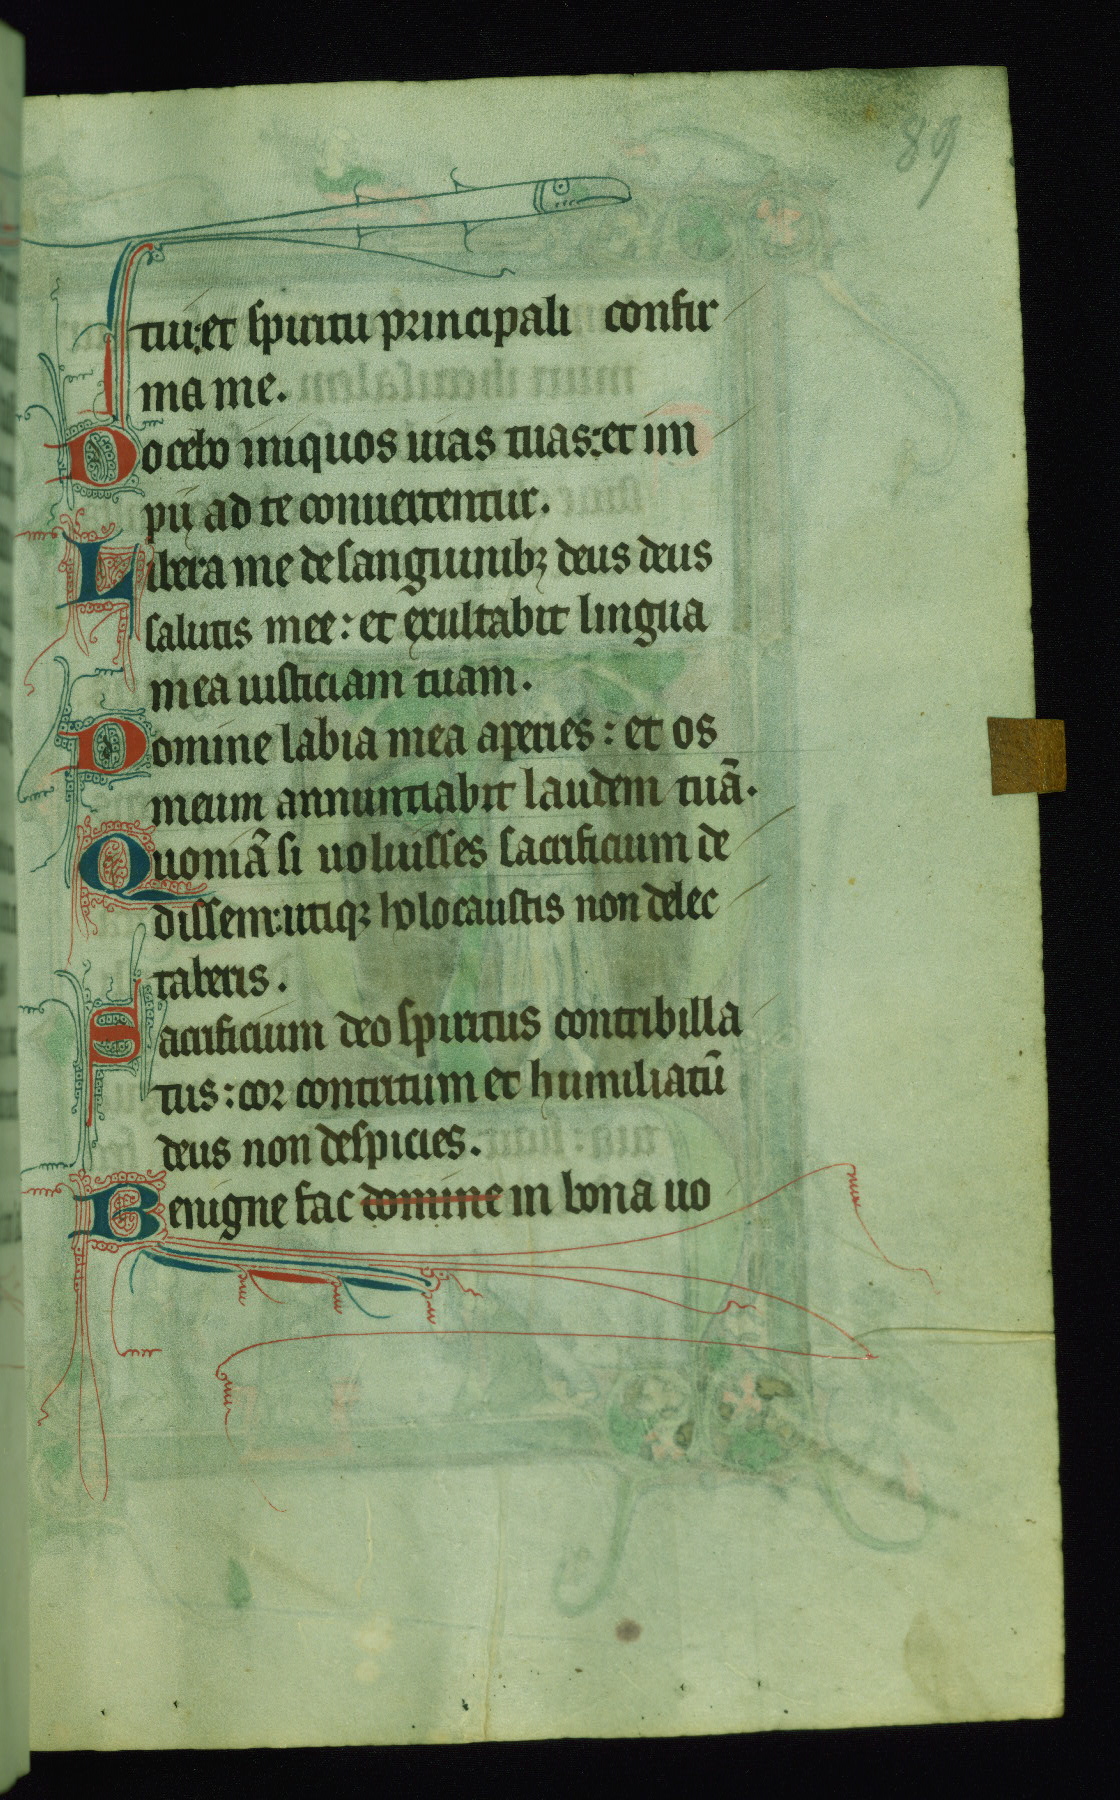 89
tui: et spiritu principali confir
ma me.
Docebo iniquos uias tuas: et im
pii ad te conuertentur.
Libera me de sanguinibꝫ deus deus
salutis mee: et exultabit lingua
mea iusticiam tuam.
Domine labia mea aperies: et os
meum annuntiabit laudem tuã.
Quoniã si uoluisses sacrificium de
dissem: utiqꝫ holocaustis non delec
taberis.
Sacrificium deo spiritus contribilla
tus: cor contritum et humiliatũ
deus non despicies.
Benigne fac domine in bona uo